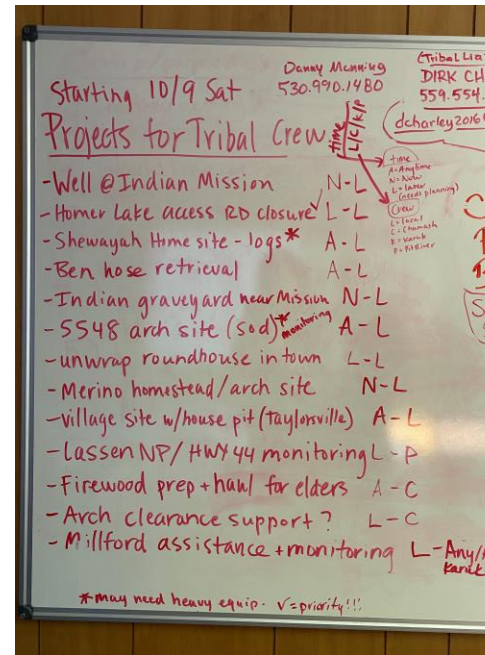 Starting 10/9 Sat
Danny Manning
530.990.1480
(Tribal Lia
DIRK CH
559.554.
dcharley2016
Projects for Tribal Crew
time
L/C/K/P
time
A=Anytime
N=Now
L=later
(needs planning)
Crew
L=local
C=Chumash
K=Karuk
P=Pit River
-Well @ Indian Mission N-L
-Homer Lake access RD closure √ L-L
-Shewayah Home site - logs* A-L
-Ben hose retrieval A-L
-Indian graveyard near Mission N-L
-5548 arch site (sod)* monitoring A-L
-unwrap roundhouse in town L-L
-Merino homestead/arch site N-L
-village site w/house pit (Taylorsville) A-L
-Lassen NP/HWY 44 monitoring L-P
-Firewood prep + haul for elders A-C
-Arch clearance support? L-C
-Millford assistance + monitoring L-Any/
Karuk
*may need heavy equip. √=priority!!!